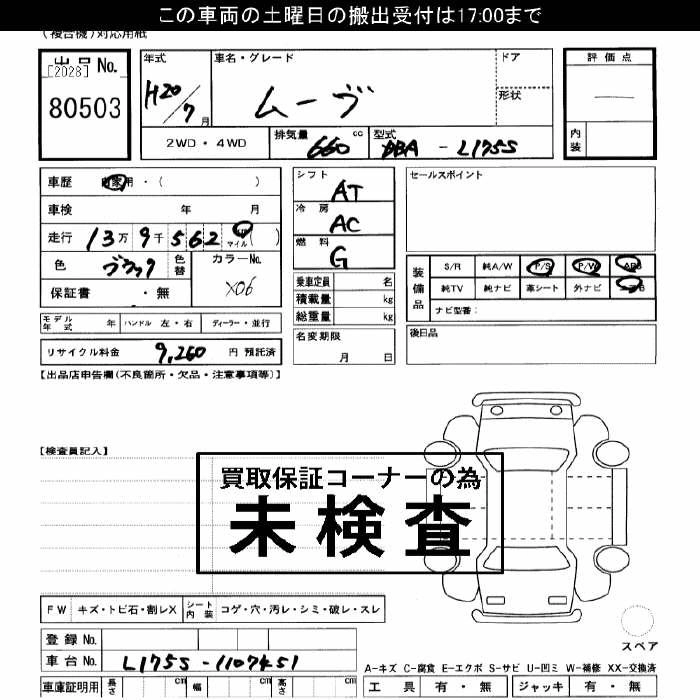 この車両の土曜日の搬出受付は17:00まで
(複合機)対応用紙
出品No.
[2028]
80503
年式 H20/7月
車名・グレード ムーヴ
ドア
形状
評価点
内装
2WD・4WD
排気量 660 cc
型式 DBA - L175S
車歴 自家用・( )
車検 年 月
走行 13万9千562 マイル( )
色 ブラック 色替
カラーNo. X06
保証書 ・無
シフト AT
冷房 AC
燃料 G
乗車定員 名
積載量 kg
総重量 kg
セールスポイント
装備品
S/R 純A/W P/S P/W ABS
純TV 純ナビ 革シート 外ナビ
ナビ型番:
モデル年式 年 ハンドル 左・右 ディーラー・並行
名変期限 月 日
後日品
リサイクル料金 9,260 円 預託済
【出品店申告欄(不良箇所・欠品・注意事項等)】
【検査員記入】
買取保証コーナーの為
未検査
FW キズ・トビ石・割レX シート内装 コゲ・穴・汚レ・シミ・破レ・スレ
スペア
登録No.
車台No. L175S-1107451
A-キズ C-腐食 E-エクボ S-サビ U-凹ミ W-補修 XX-交換済
車庫証明用 長さ cm 幅 cm 高さ cm
工具 有・無 ジャッキ 有・無